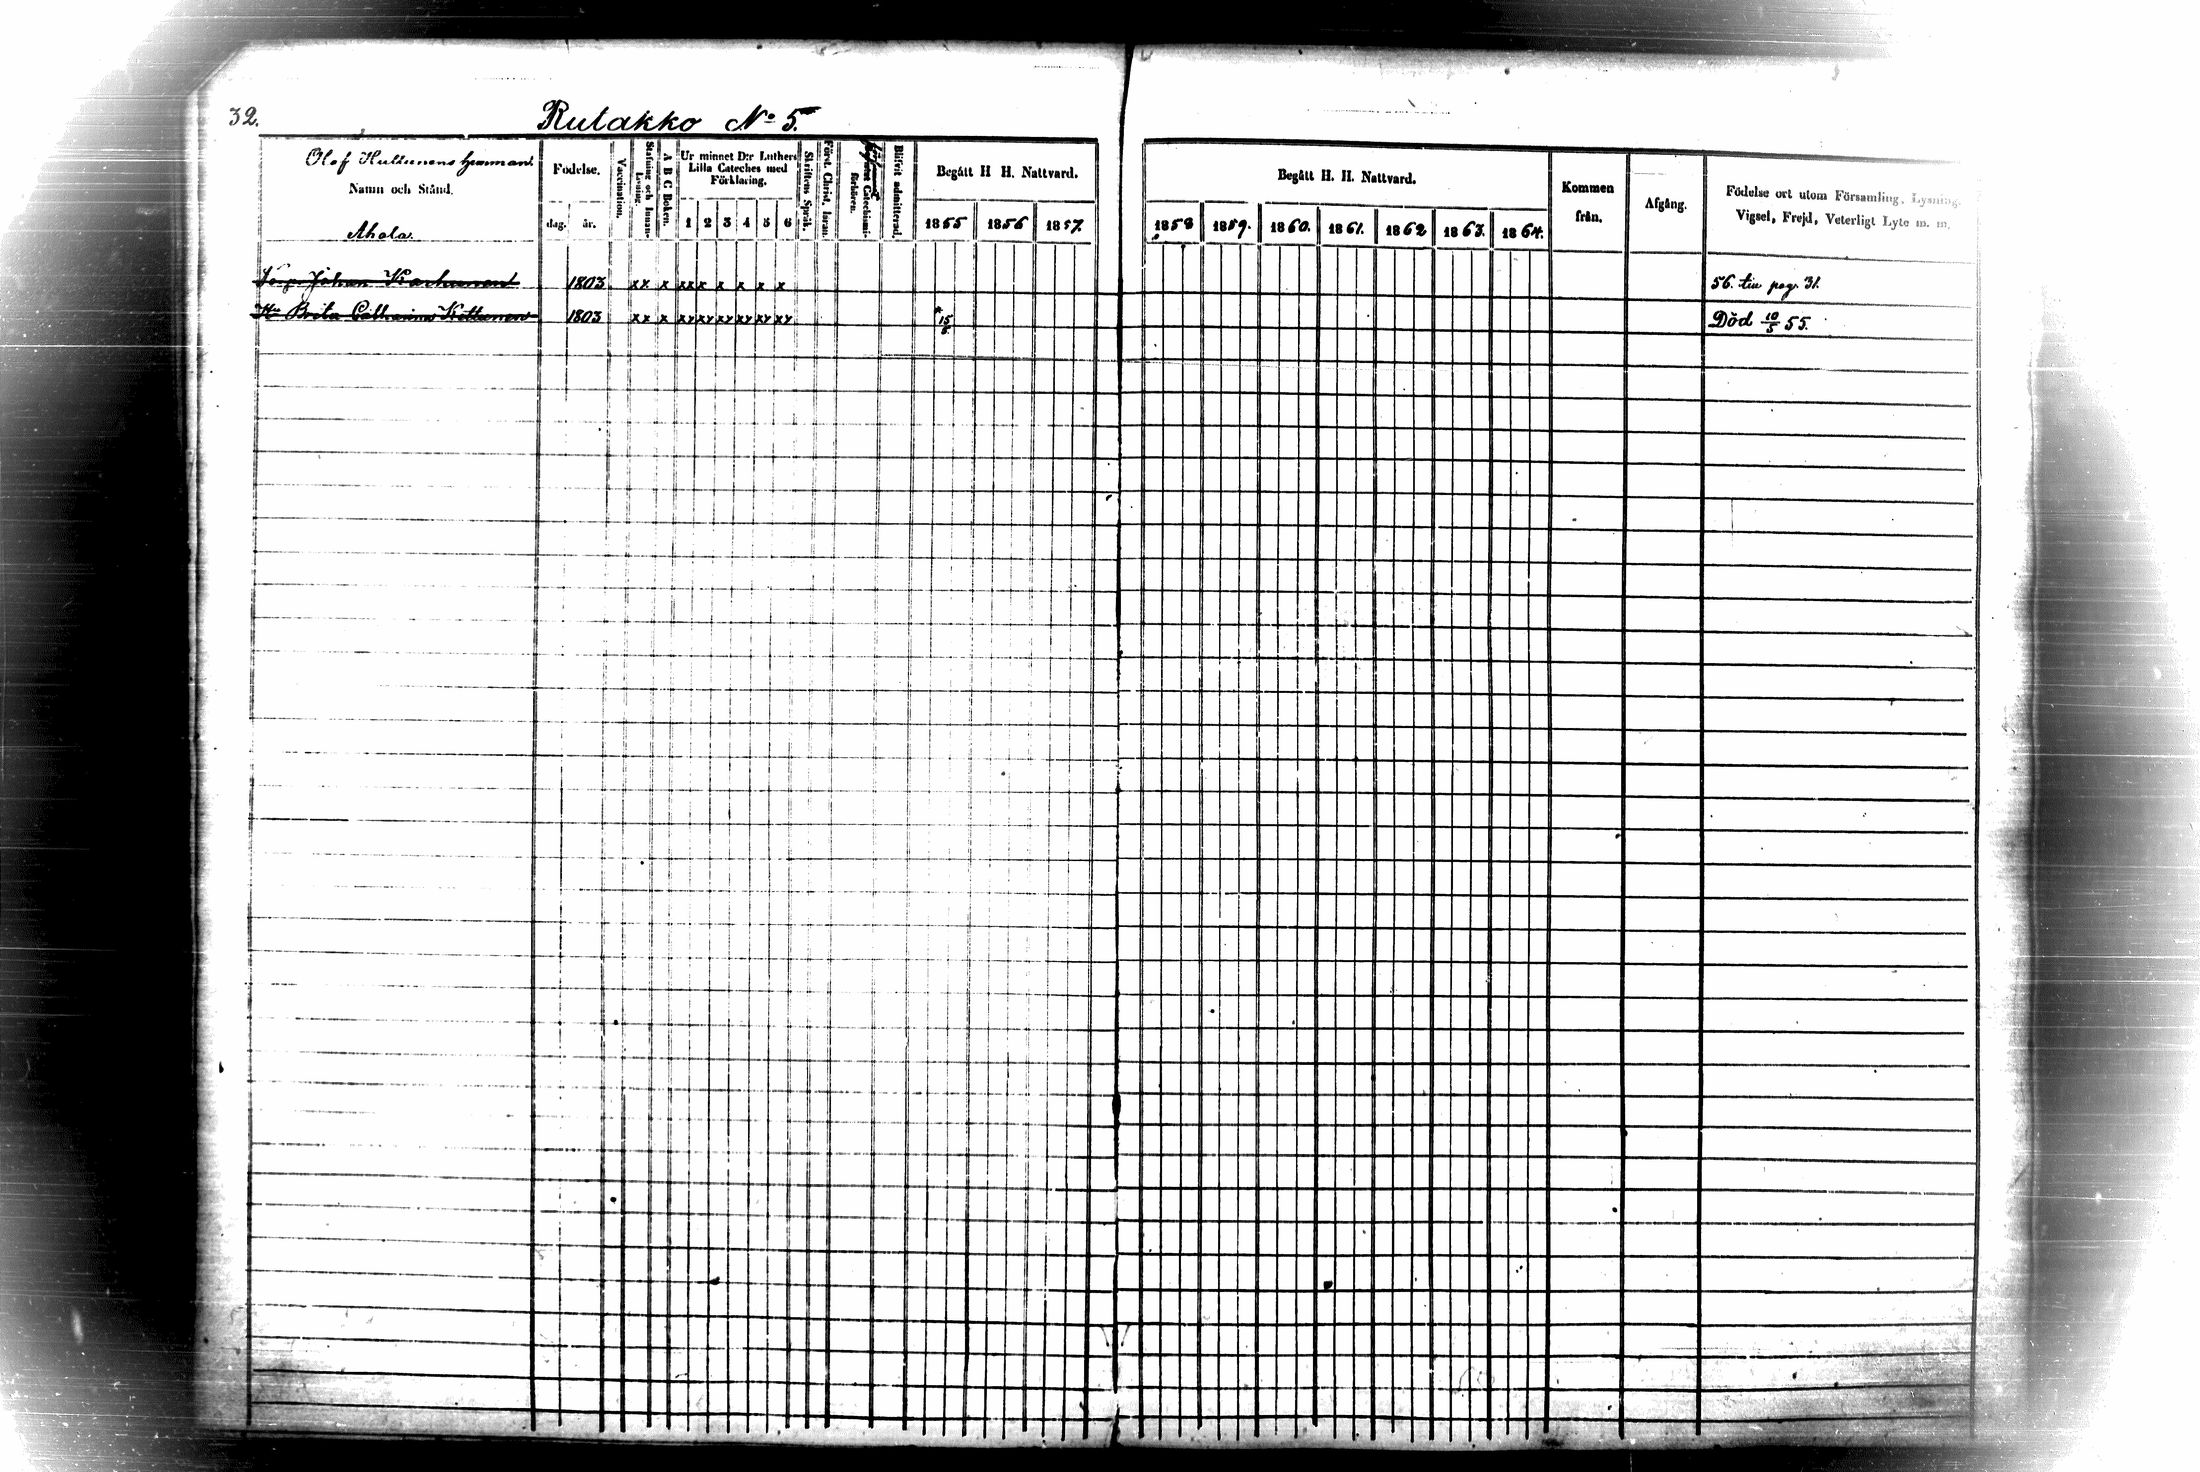 32.
Rutakko No 5.
Olof Hultunens hemman.
Namn och Stånd.
Ahola.
Födelse.
dag. år.
Vaccination.
Stafning och Innan-
Läsning.
A B C Boken.
Ur minnet D:r Luthers
Lilla Cateches med
Förklaring.
1 2 3 4 5 6
Skriftens Språk.
Först. Christ. Läran.
Catechismi-
förhören.
Blifvit admitterad.
Begått H H. Nattvard.
1855 1856 1857.
Begått H. H. Nattvard.
1858 1859. 1860. 1861. 1862 1863. 1864.
Kommen
från.
Afgång.
Födelse ort utom Församling, Lysning,
Vigsel, Frejd, Veterligt Lyte m. m.
Johan Karhunen 1803 xx x xx x x x x x 56. till pag. 31.
Hu Brita Catharina Kettunen 1803 xx x xy xy xy xy xy xy x 15/6 Död 10/5 55.